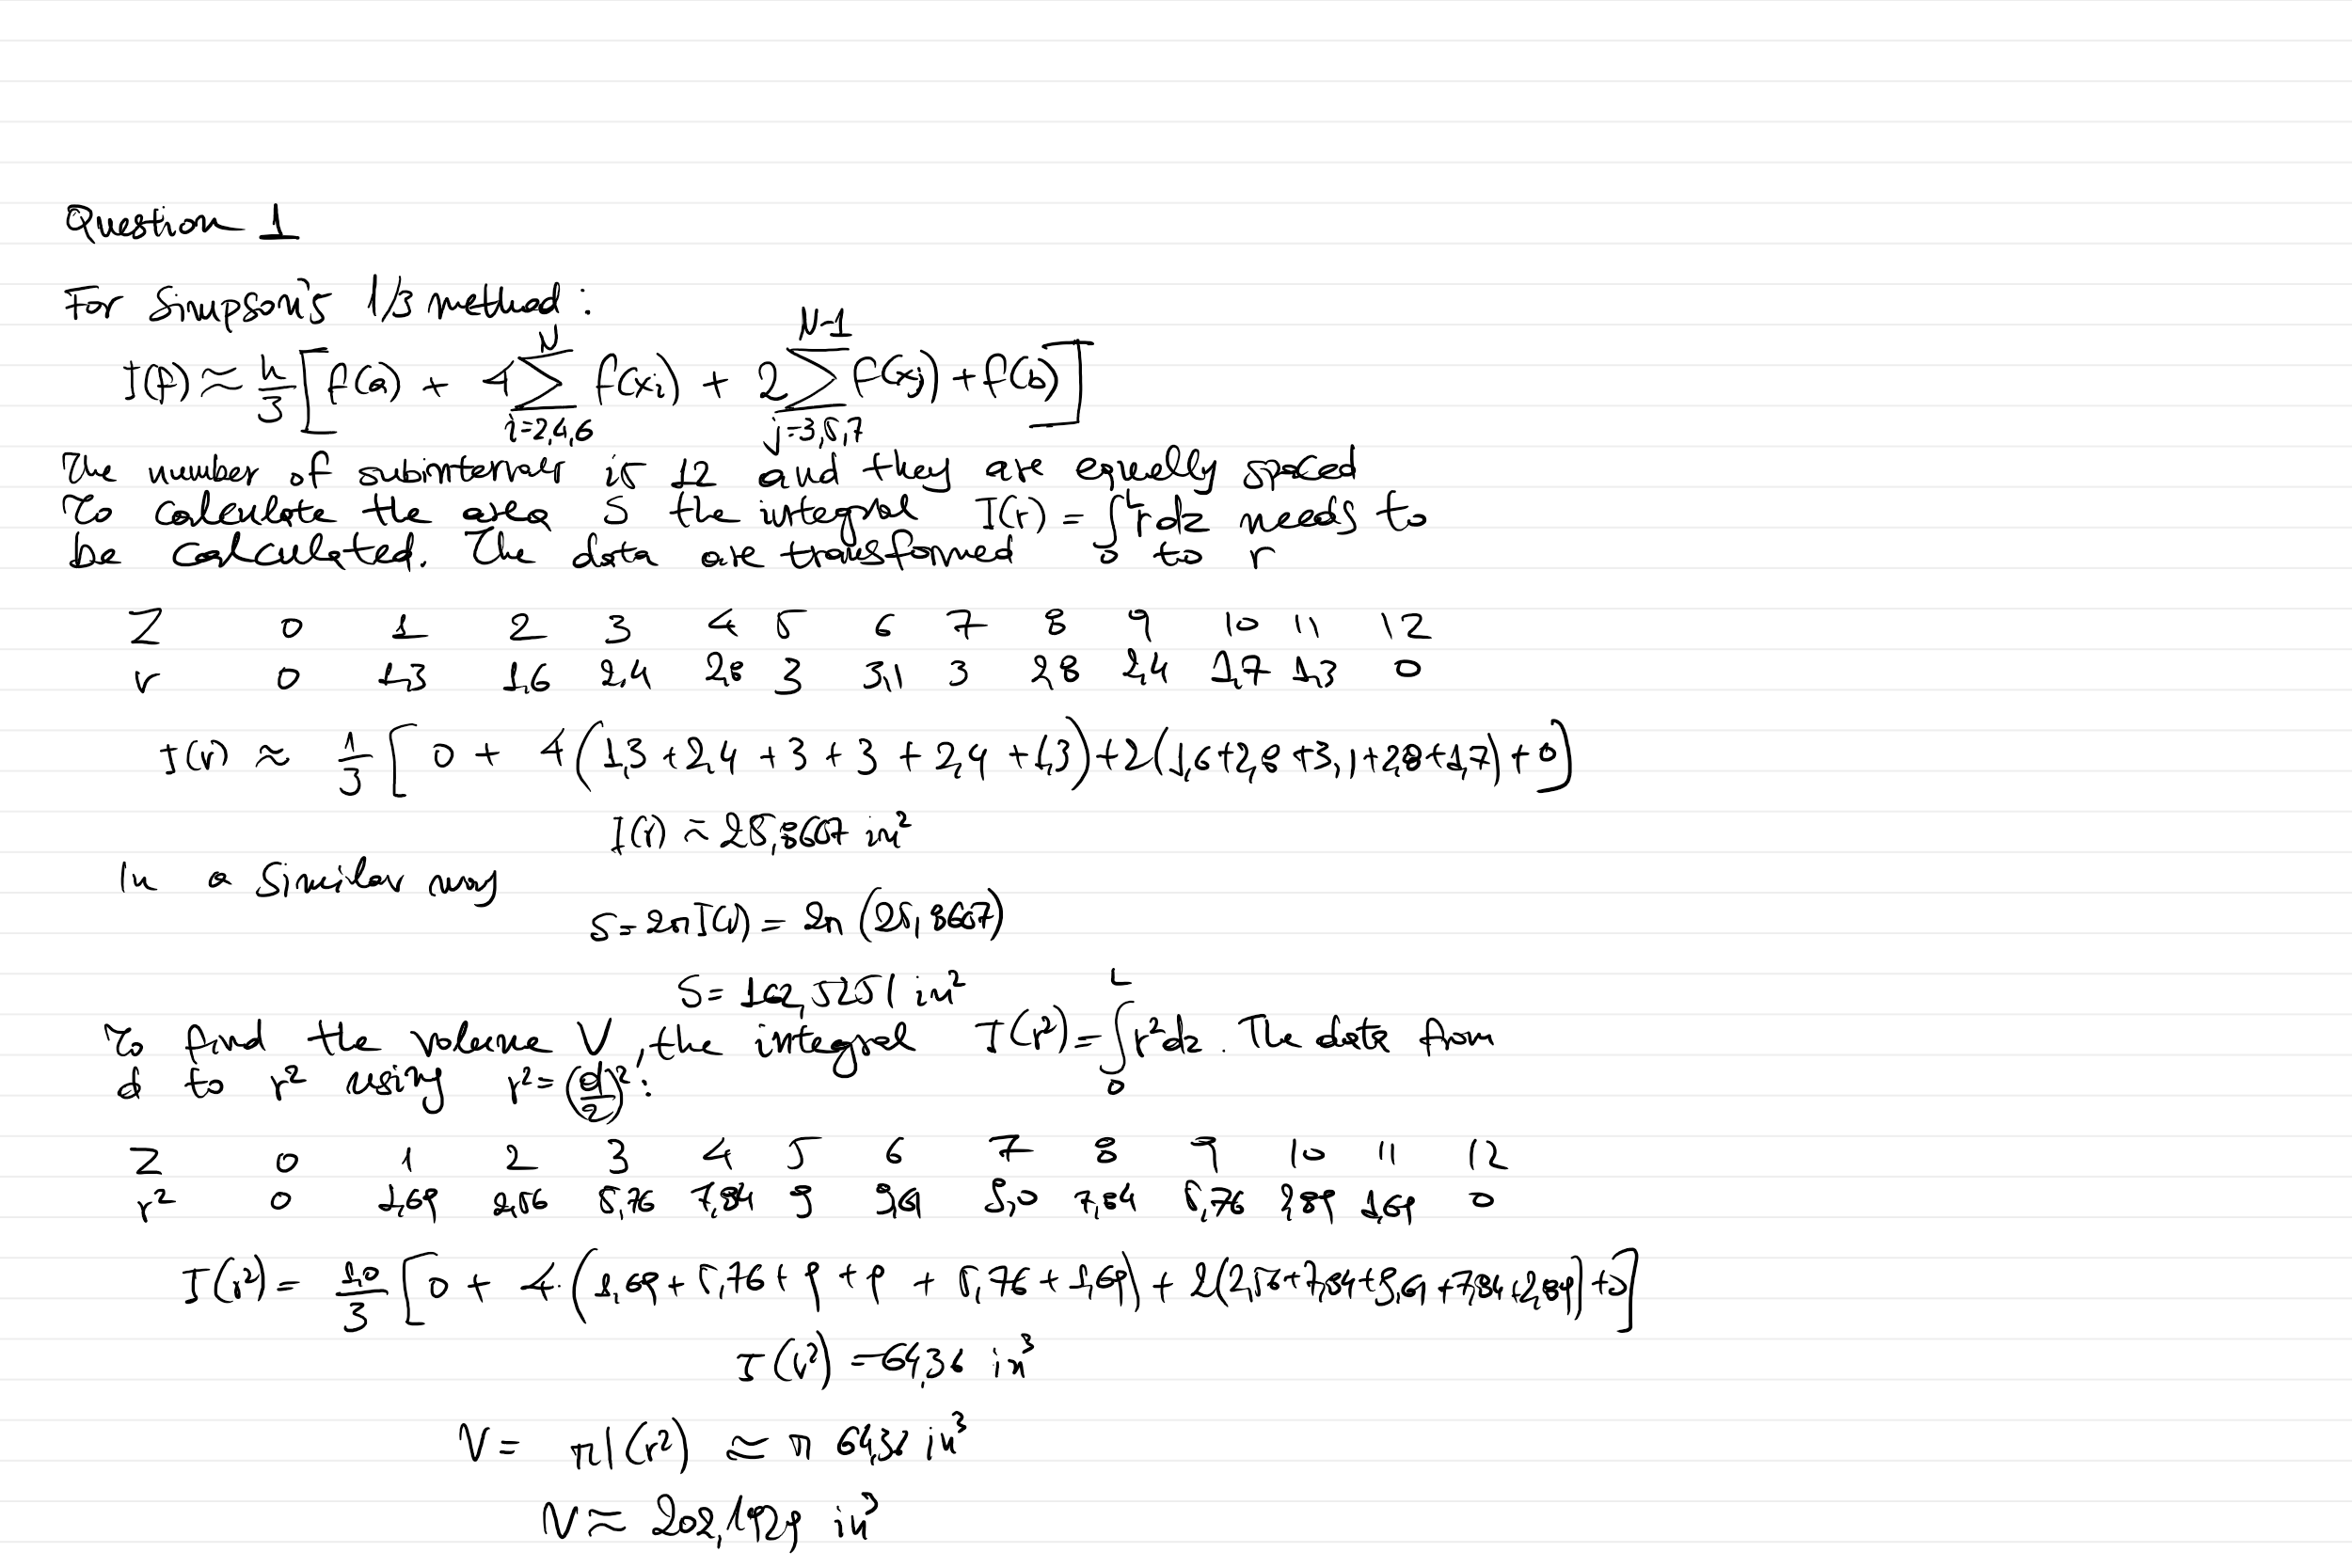 Question 1
For Simpson's 1/3 method:
I(f) ≈ h/3 [f(a) + 4 ∑_{i=2,4,6}^{N} f(xi) + 2 ∑_{j=3,5,7}^{N-1} f(xj) + f(b)]
The number of subintervals is 12 and they are equally spaced
To calculate the area S the integral I(r) = ∫_0^L r dz needs to
be calculated. The data are transformed to r
Z 0 1 2 3 4 5 6 7 8 9 10 11 12
r 0 1,3 1,6 2,4 2,8 3 3,1 3 2,8 2,4 1,7 1,3 0
I(r) ≈ 1/3 [0 + 4(1,3 + 2,4 + 3 + 3 + 2,4 + 1,3) + 2(1,6 + 2,8 + 3,1 + 2,8 + 1,7) + 0]
I(r) ≈ 25,8667 in²
In a similar way
S = 2πI(r) = 2π (25,8667)
S = 162,5251 in²
To find the volume V, the integral I(r²) = ∫_0^L r² dz. The data from
d to r² using r² = (d/2)²:
Z 0 1 2 3 4 5 6 7 8 9 10 11 12
r² 0 1,69 2,56 5,76 7,84 9 9,61 9,0 7,84 5,76 2,89 1,69 0
I(r²) = 1,0/3 [0 + 4·(1,69 + 5,76 + 9 + 9 + 5,76 + 1,69) + 2(2,56 + 7,84 + 9,61 + 7,84 + 2,89) + 0]
I(r²) = 64,36 in³
V = πI(r²) ≈ π 64,36 in³
V ≈ 202,1929 in³